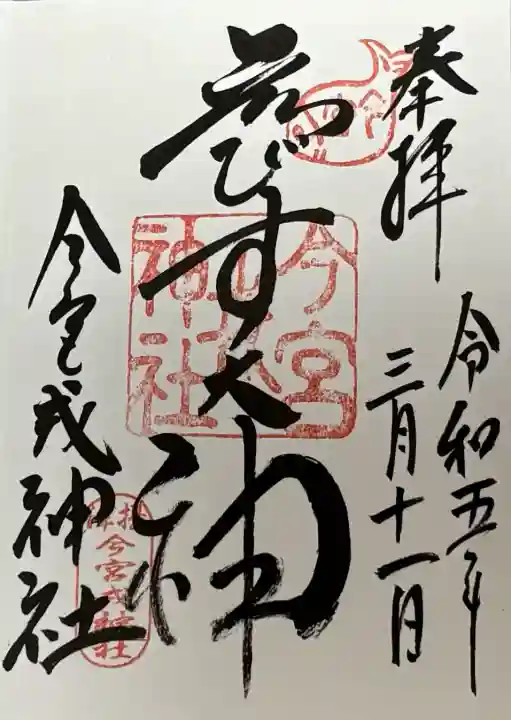 奉拝
令和五年
三月十一日
ゑびす大神
今宮戎神社
今宮戎神社
今宮戎神社